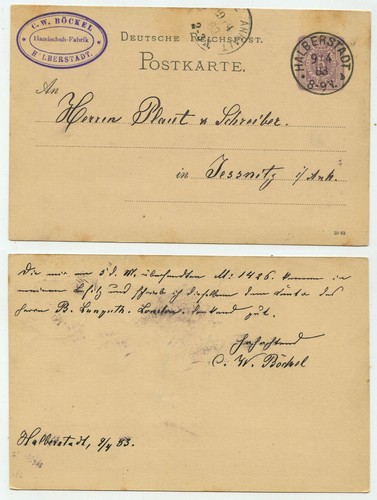 C. W. BÖCKEL
Handschuh-Fabrik
HALBERSTADT.
DEUTSCHE REICHSPOST.
POSTKARTE.
HALBERSTADT
9/4
83
8-9V.
An
Herren Plaut & Schreiber.
in Jessnitz i/Anh.
Die mir am 5 d. M. übersandten M: 1426. kamen in
meinen Besitz und schrieb ich dieselben dem Conto des
Herrn B. Lunguth. London. dankend gut.
Hochachtend
C. W. Böckel
Halberstadt, 9/4 83.